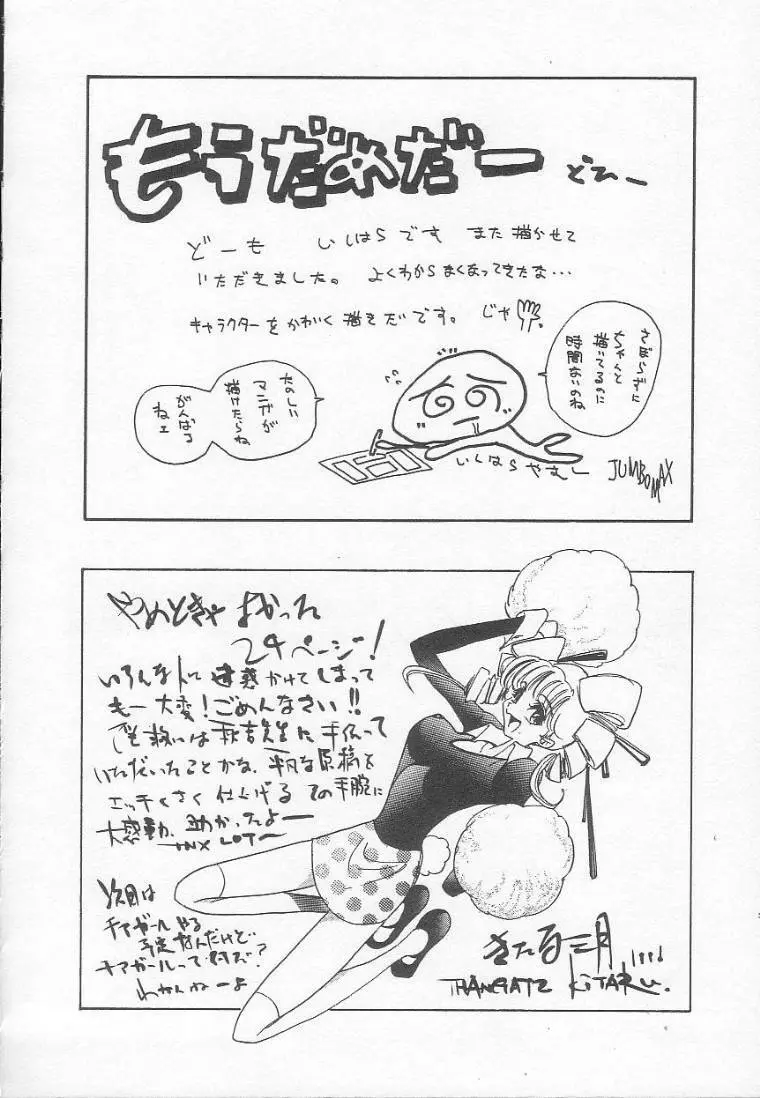 もうだめだー
どひー
どーも いしはらです また描かせて
いただきました。 よくわからなくなってきたな…
キャラクターをかわいく描きだです。 じゃ
さぼらずに
ちゃんと
描いてるのに
時間ないのね
たのしい
マンガが
描けたらね
がんばる
ねェ
いしはらやすし
JUMBOMAX
やめときゃよかった
24ページ!
いろんな人に迷惑かけてしまって
もー大変!ごめんなさい!!
救いは 先生に手伝って
いただいたことかな、平凡な原稿を
エッチくさく仕上げるその手腕に
大感動、助かったよー
TNX LOT〜
次回は
チアガールやる
予定なんだけど…
チアガールって何だ?
わかんねーよ
きたる 三月
KITARU.